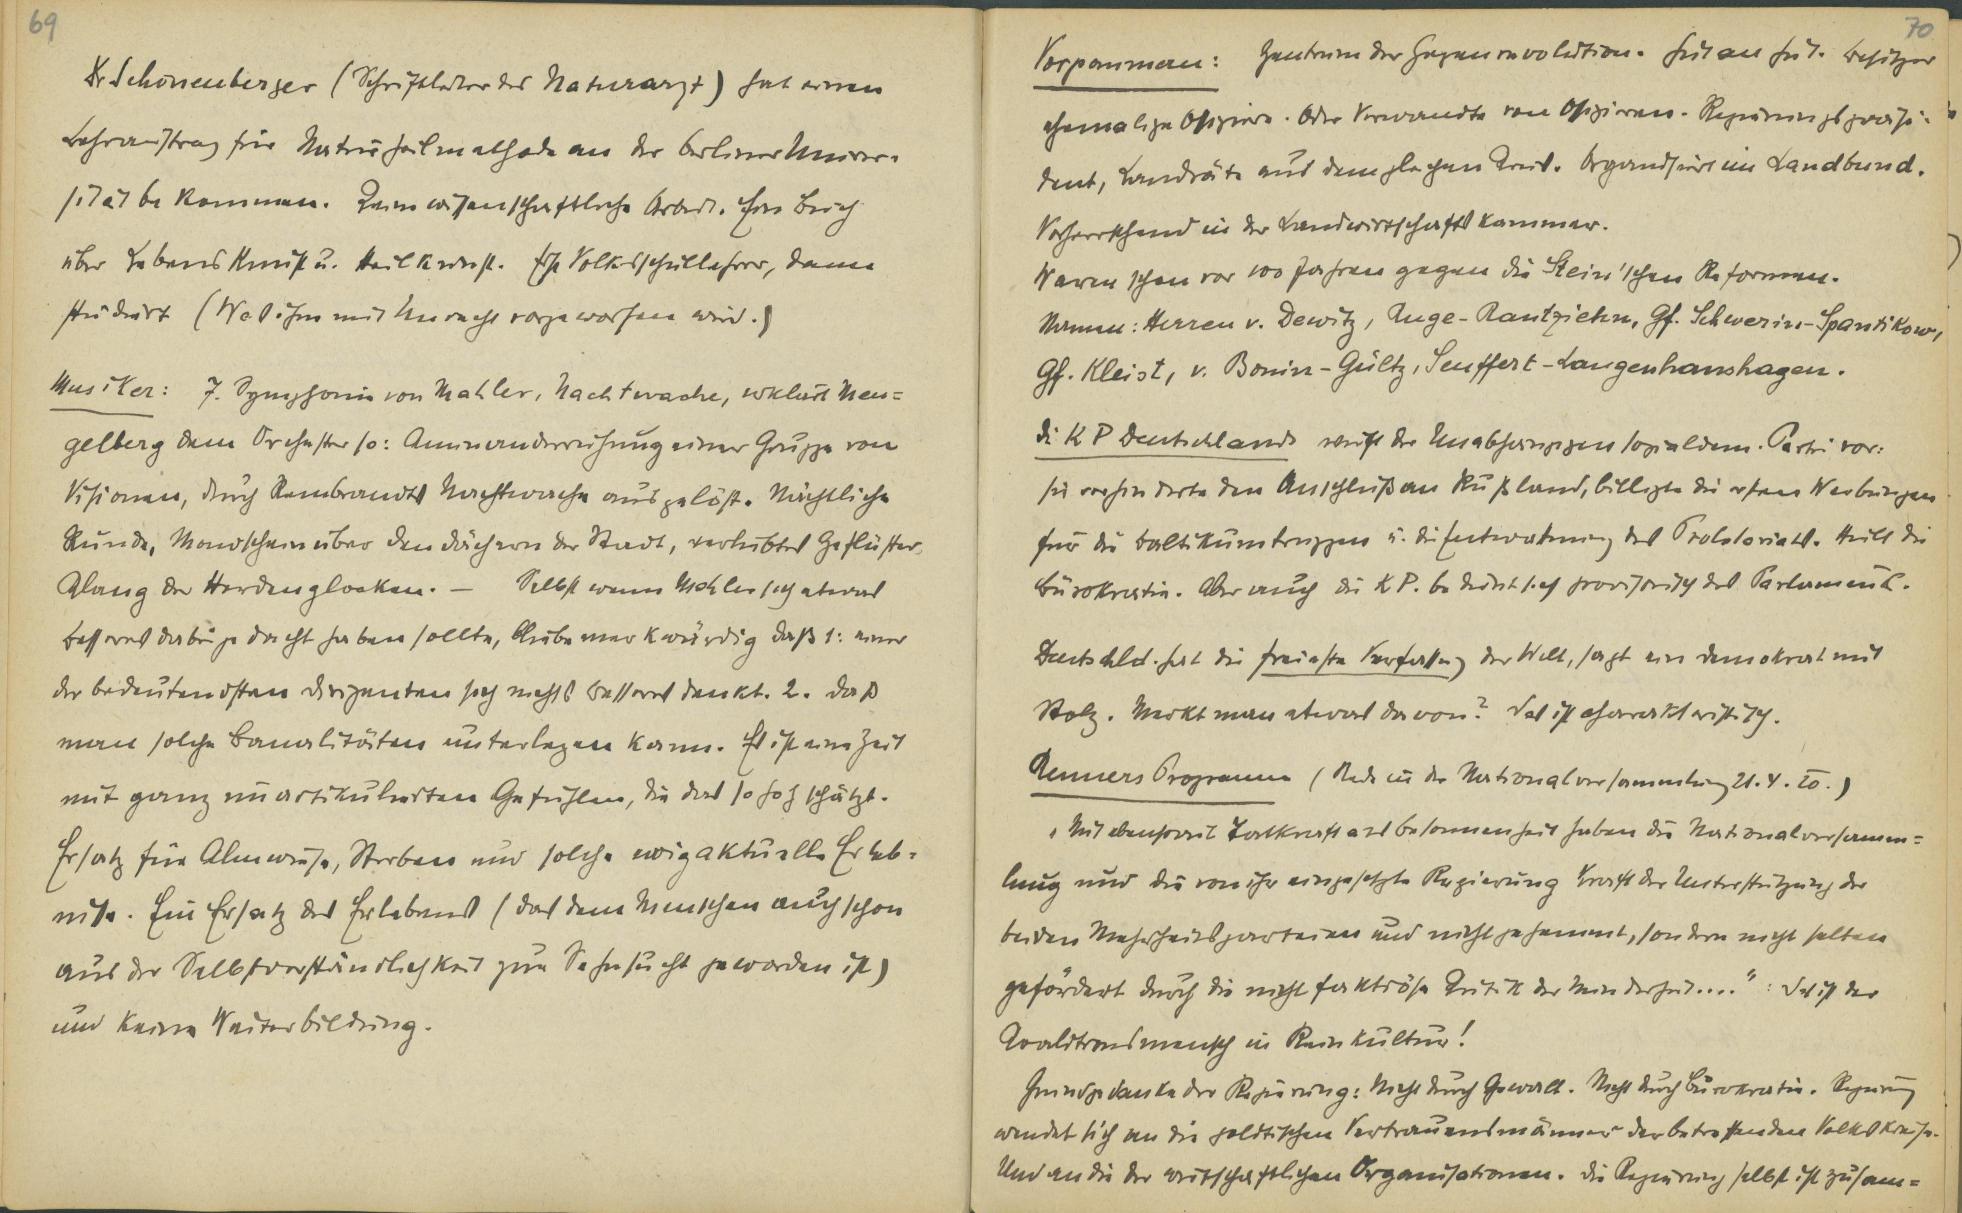 69
Dr Schönenberger (Schriftleiter des Naturarzt) hat einen
Lehrauftrag für Naturheilmethode an der Berliner Univer-
sität bekommen. Keine wissenschaftliche Arbeit. Ein Buch
über Lebenskunst u. Heilkunst. Erst Volksschullehrer, dann
studiert (Was ihm mit Unrecht vorgeworfen wird.)
Musiker: 7. Symphonie von Mahler, Nachtwache, erklärt Men=
gelberg dem Orchester so: Aneinanderreihung einer Gruppe von
Visionen, durch Rembrandts Nachtwache ausgelöst. Nächtliche
Runde, Mondschein über den Dächern der Stadt, verliebtes Geflüster,
Klang der Herdenglocken. — Selbst wenn Mahler sich etwas
Besseres dabei gedacht haben sollte, bliebe merkwürdig daß 1: einer
der bedeutendsten Dirigenten sich nichts Besseres denkt. 2. daß
man solche Banalitäten unterlegen kann. Es ist eine Zeit
mit ganz unartikulierten Gefühlen, die das so hoch schätzt.
Ersatz für Almwiese, Sterben und solche ewig aktuelle Erleb-
nisse. Ein Ersatz des Erlebens (das dem Menschen auch schon
aus der Selbstverständlichkeit zur Sehnsucht geworden ist)
und keine Weiterbildung.
70
Vorpommern: Zentrum der Gegenrevolution. Gut an Gut. Besitzer
ehemalige Offiziere. Oder Verwandte von Offizieren. Regierungspräsi-
dent, Landräte aus dem gleichen Kreis. Organisiert im Landbund.
Vorherrschend in der Landwirtschaftskammer.
Waren schon vor 100 Jahren gegen die Stein'schen Reformen.
Namen: Herren v. Dewitz, Ruge-Rantziehn, Gf. Schwerin-Spantikow,
Gf. Kleist, v. Bonin-Gültz, Senffert-Langenhanshagen.
Di K P Deutschlands wirft der Unabhängigen sozialdem. Partei vor:
sie verhinderte den Anschluß an Rußland, billigte die ersten Werbungen
für die Baltikumtruppen u. die Entwaffnung des Proletariats. Hielt die
Bürokratie. Aber auch die K P. bedient sich provisorisch des Parlaments.
Deutschld. hat die freieste Verfassung der Welt, sagt ein Demokrat mit
Stolz. Merkt man etwas davon? Das ist charakteristisch.
Renners Programm (Rede in der Nationalversammlung 21.4.20.)
„Mit ebensoviel Tatkraft als Besonnenheit haben die Nationalversamm=
lung und die von ihr eingesetzte Regierung kraft der Unterstützung der
beiden Mehrheitsparteien und nicht gehemmt, sondern nicht selten
gefördert durch die nicht faktiöse Kritik der Minderheit....": Das ist der
Koalitionsmensch in Reinkultur!
Grundgedanke der Regierung: Nicht durch Gewalt. Nicht durch Bürokratie. Regierung
wendet sich an die politischen Vertrauensmänner der betreffenden Volkskreise.
Und an die der wirtschaftlichen Organisationen. Die Regierung selbst ist zusam=